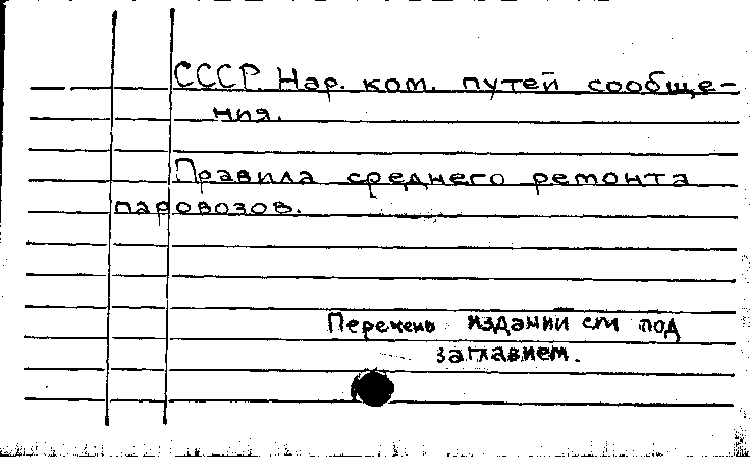 СССР. Нар. ком. путей сообще-
ния.
Правила среднего ремонта
паровозов.
Перечень изданий см под
заглавием.